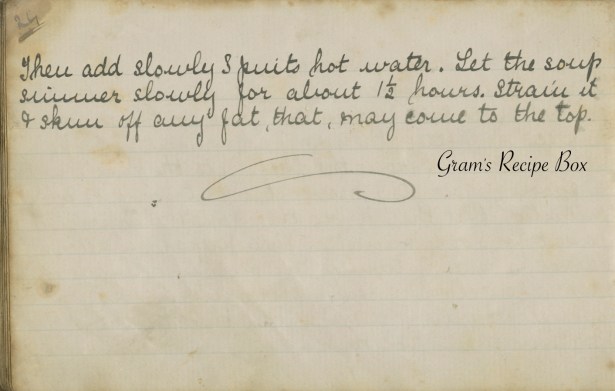 24
Then add slowly 3 pints hot water. Let the soup
simmer slowly for about 1½ hours. Strain it
& skim off any fat, that, may come to the top.
Gram's Recipe Box